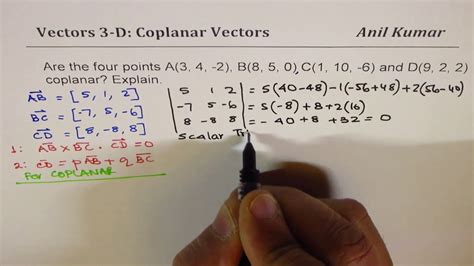 Vectors 3-D: Coplanar Vectors Anil Kumar
Are the four points A(3, 4, -2), B(8, 5, 0), C(1, 10, -6) and D(9, 2, 2)
coplanar? Explain.
AB = [5, 1, 2]
BC = [-7, 5, -6]
CD = [8, -8, 8]
1: AB × BC · CD = 0
2: CD = pAB + qBC
FOR COPLANAR
| 5 1 2 | = 5(40-48) -1(-56+48) + 2(56-40)
| -7 5 -6 | = 5(-8) + 8 + 2(16)
| 8 -8 8 | = -40 + 8 + 32 = 0
Scalar Tr